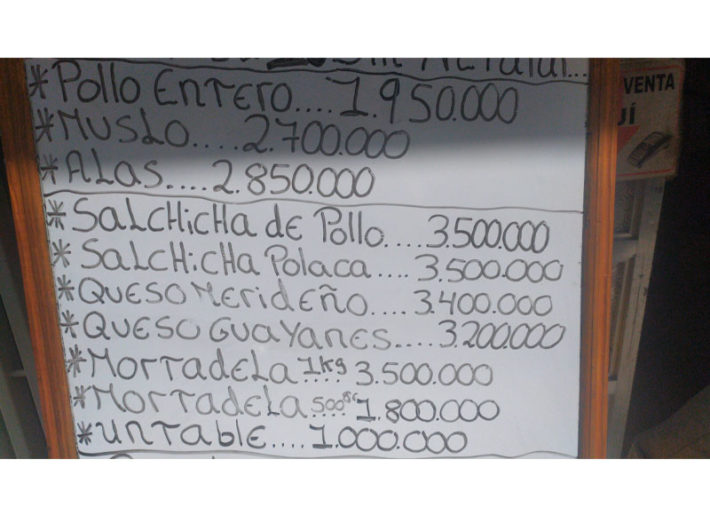 *Pollo EnTero....1.950.000
*MUSLO....2.700.000
*ALas....2.850.000
*SaLcHicHa de Pollo....3.500.000
*SaLcHicHa Polaca....3.500.000
*QUESO Merideño....3.400.000
*QUESO GUaYanes....3.200.000
*MorTadeLa 1kg....3.500.000
*MorTadeLa 500gr...1.800.000
*UnTable....1.000.000
VENTA